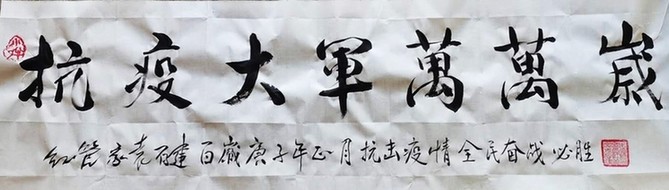 抗疫大軍萬萬歲
红管家袁百建百歲庚子年正月抗击疫情全民奋战必胜